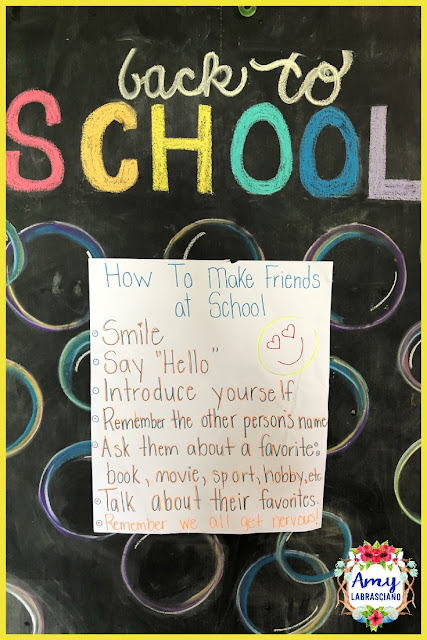 back to
SCHOOL
How To Make Friends
at School
Smile
Say "Hello"
Introduce yourself
Remember the other person's name
Ask them about a favorite:
book, movie, sport, hobby, etc
Talk about their favorites.
Remember we all get nervous!
Amy
LABRASCIANO